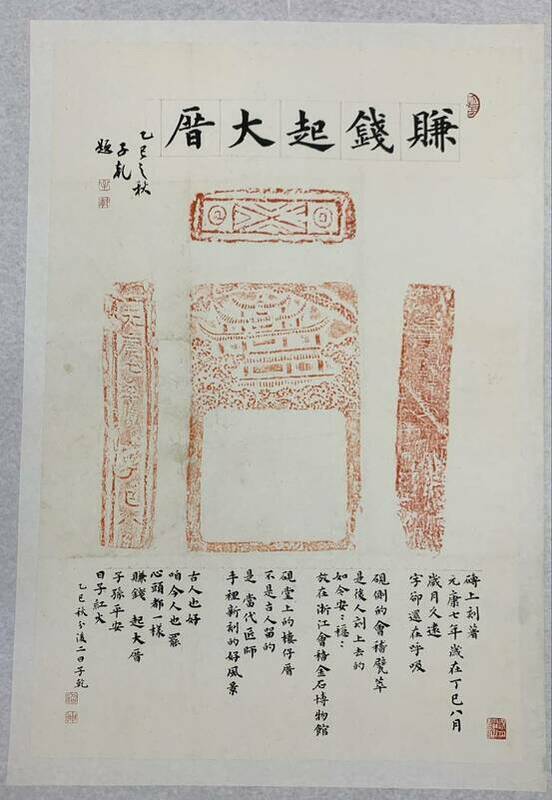 賺錢起大厝
乙巳之秋
子乾
題
磚上刻著
元康七年歲在丁巳八月
歲月久遠
字卻還在呼吸
硯側的會稽甓萃
是後人刻上去的
如今安安穩穩
放在浙江會稽金石博物館
硯堂上的樓仔厝
不是古人留的
是當代匠師
手裡新刻的好風景
古人也好
咱今人也罷
心頭都一樣
賺錢 起大厝
子孫平安
日子紅火
乙巳秋分後二日子乾